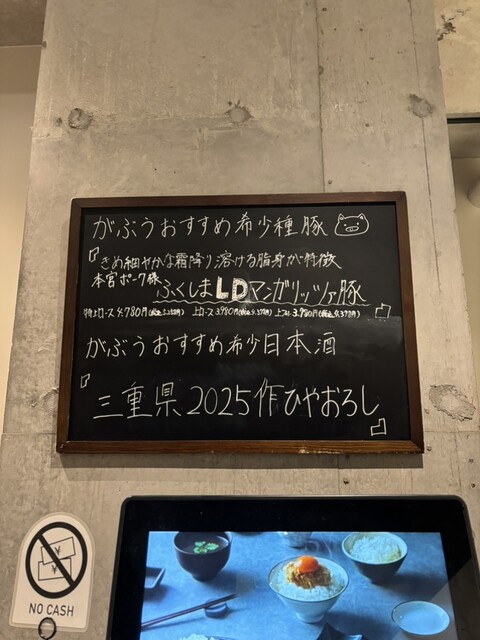 がぶうおすすめ希少種豚
『きめ細やかな霜降り溶ける脂身が特徴
本宮ポーク様 ふくしまLDマンガリッツァ豚
特上ロース4.780円(税込5.258円) 上ロース3.980円(税込4.378円) 上ヒレ3.980円(税込4.378円)』
がぶうおすすめ希少日本酒
『三重県2025作ひやおろし』
NO CASH